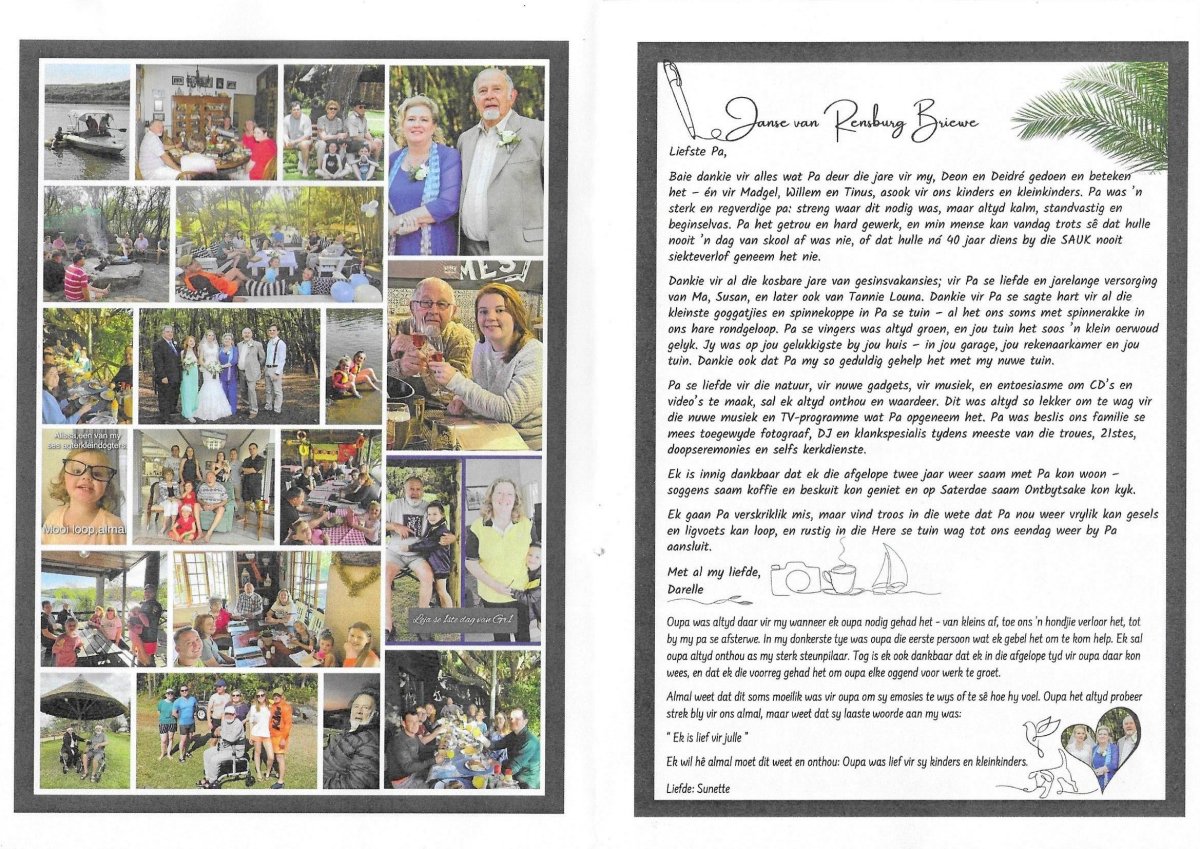 MES!
Alissa,een van my
ses agterkleindogters.
Mooi loop,alma
Leja se 1ste dag van Gr1
Janse van Rensburg Briewe
Liefste Pa,
Baie dankie vir alles wat Pa deur die jare vir my, Deon en Deidré gedoen en beteken
het – én vir Madgel, Willem en Tinus, asook vir ons kinders en kleinkinders. Pa was ’n
sterk en regverdige pa: streng waar dit nodig was, maar altyd kalm, standvastig en
beginselvas. Pa het getrou en hard gewerk, en min mense kan vandag trots sê dat hulle
nooit ’n dag van skool af was nie, of dat hulle ná 40 jaar diens by die SAUK nooit
siekteverlof geneem het nie.
Dankie vir al die kosbare jare van gesinsvakansies; vir Pa se liefde en jarelange versorging
van Ma, Susan, en later ook van Tannie Louna. Dankie vir Pa se sagte hart vir al die
kleinste goggatjies en spinnekoppe in Pa se tuin – al het ons soms met spinnerakke in
ons hare rondgeloop. Pa se vingers was altyd groen, en jou tuin het soos ’n klein oerwoud
gelyk. Jy was op jou gelukkigste by jou huis – in jou garage, jou rekenaarkamer en jou
tuin. Dankie ook dat Pa my so geduldig gehelp het met my nuwe tuin.
Pa se liefde vir die natuur, vir nuwe gadgets, vir musiek, en entoesiasme om CD’s en
video’s te maak, sal ek altyd onthou en waardeer. Dit was altyd so lekker om te wag vir
die nuwe musiek en TV-programme wat Pa opgeneem het. Pa was beslis ons familie se
mees toegewyde fotograaf, DJ en klankspesialis tydens meeste van die troues, 21stes,
doopseremonies en selfs kerkdienste.
Ek is innig dankbaar dat ek die afgelope twee jaar weer saam met Pa kon woon –
soggens saam koffie en beskuit kon geniet en op Saterdae saam Ontbytsake kon kyk.
Ek gaan Pa verskriklik mis, maar vind troos in die wete dat Pa nou weer vrylik kan gesels
en ligvoets kan loop, en rustig in die Here se tuin wag tot ons eendag weer by Pa
aansluit.
Met al my liefde,
Darelle
Oupa was altyd daar vir my wanneer ek oupa nodig gehad het - van kleins af, toe ons 'n hondjie verloor het, tot
by my pa se afsterwe. In my donkerste tye was oupa die eerste persoon wat ek gebel het om te kom help. Ek sal
oupa altyd onthou as my sterk steunpilaar. Tog is ek ook dankbaar dat ek in die afgelope tyd vir oupa daar kon
wees, en dat ek die voorreg gehad het om oupa elke oggend voor werk te groet.
Almal weet dat dit soms moeilik was vir oupa om sy emosies te wys of te sê hoe hy voel. Oupa het altyd probeer
strek bly vir ons almal, maar weet dat sy laaste woorde aan my was:
“ Ek is lief vir julle ”
Ek wil hê almal moet dit weet en onthou: Oupa was lief vir sy kinders en kleinkinders.
Liefde: Sunette